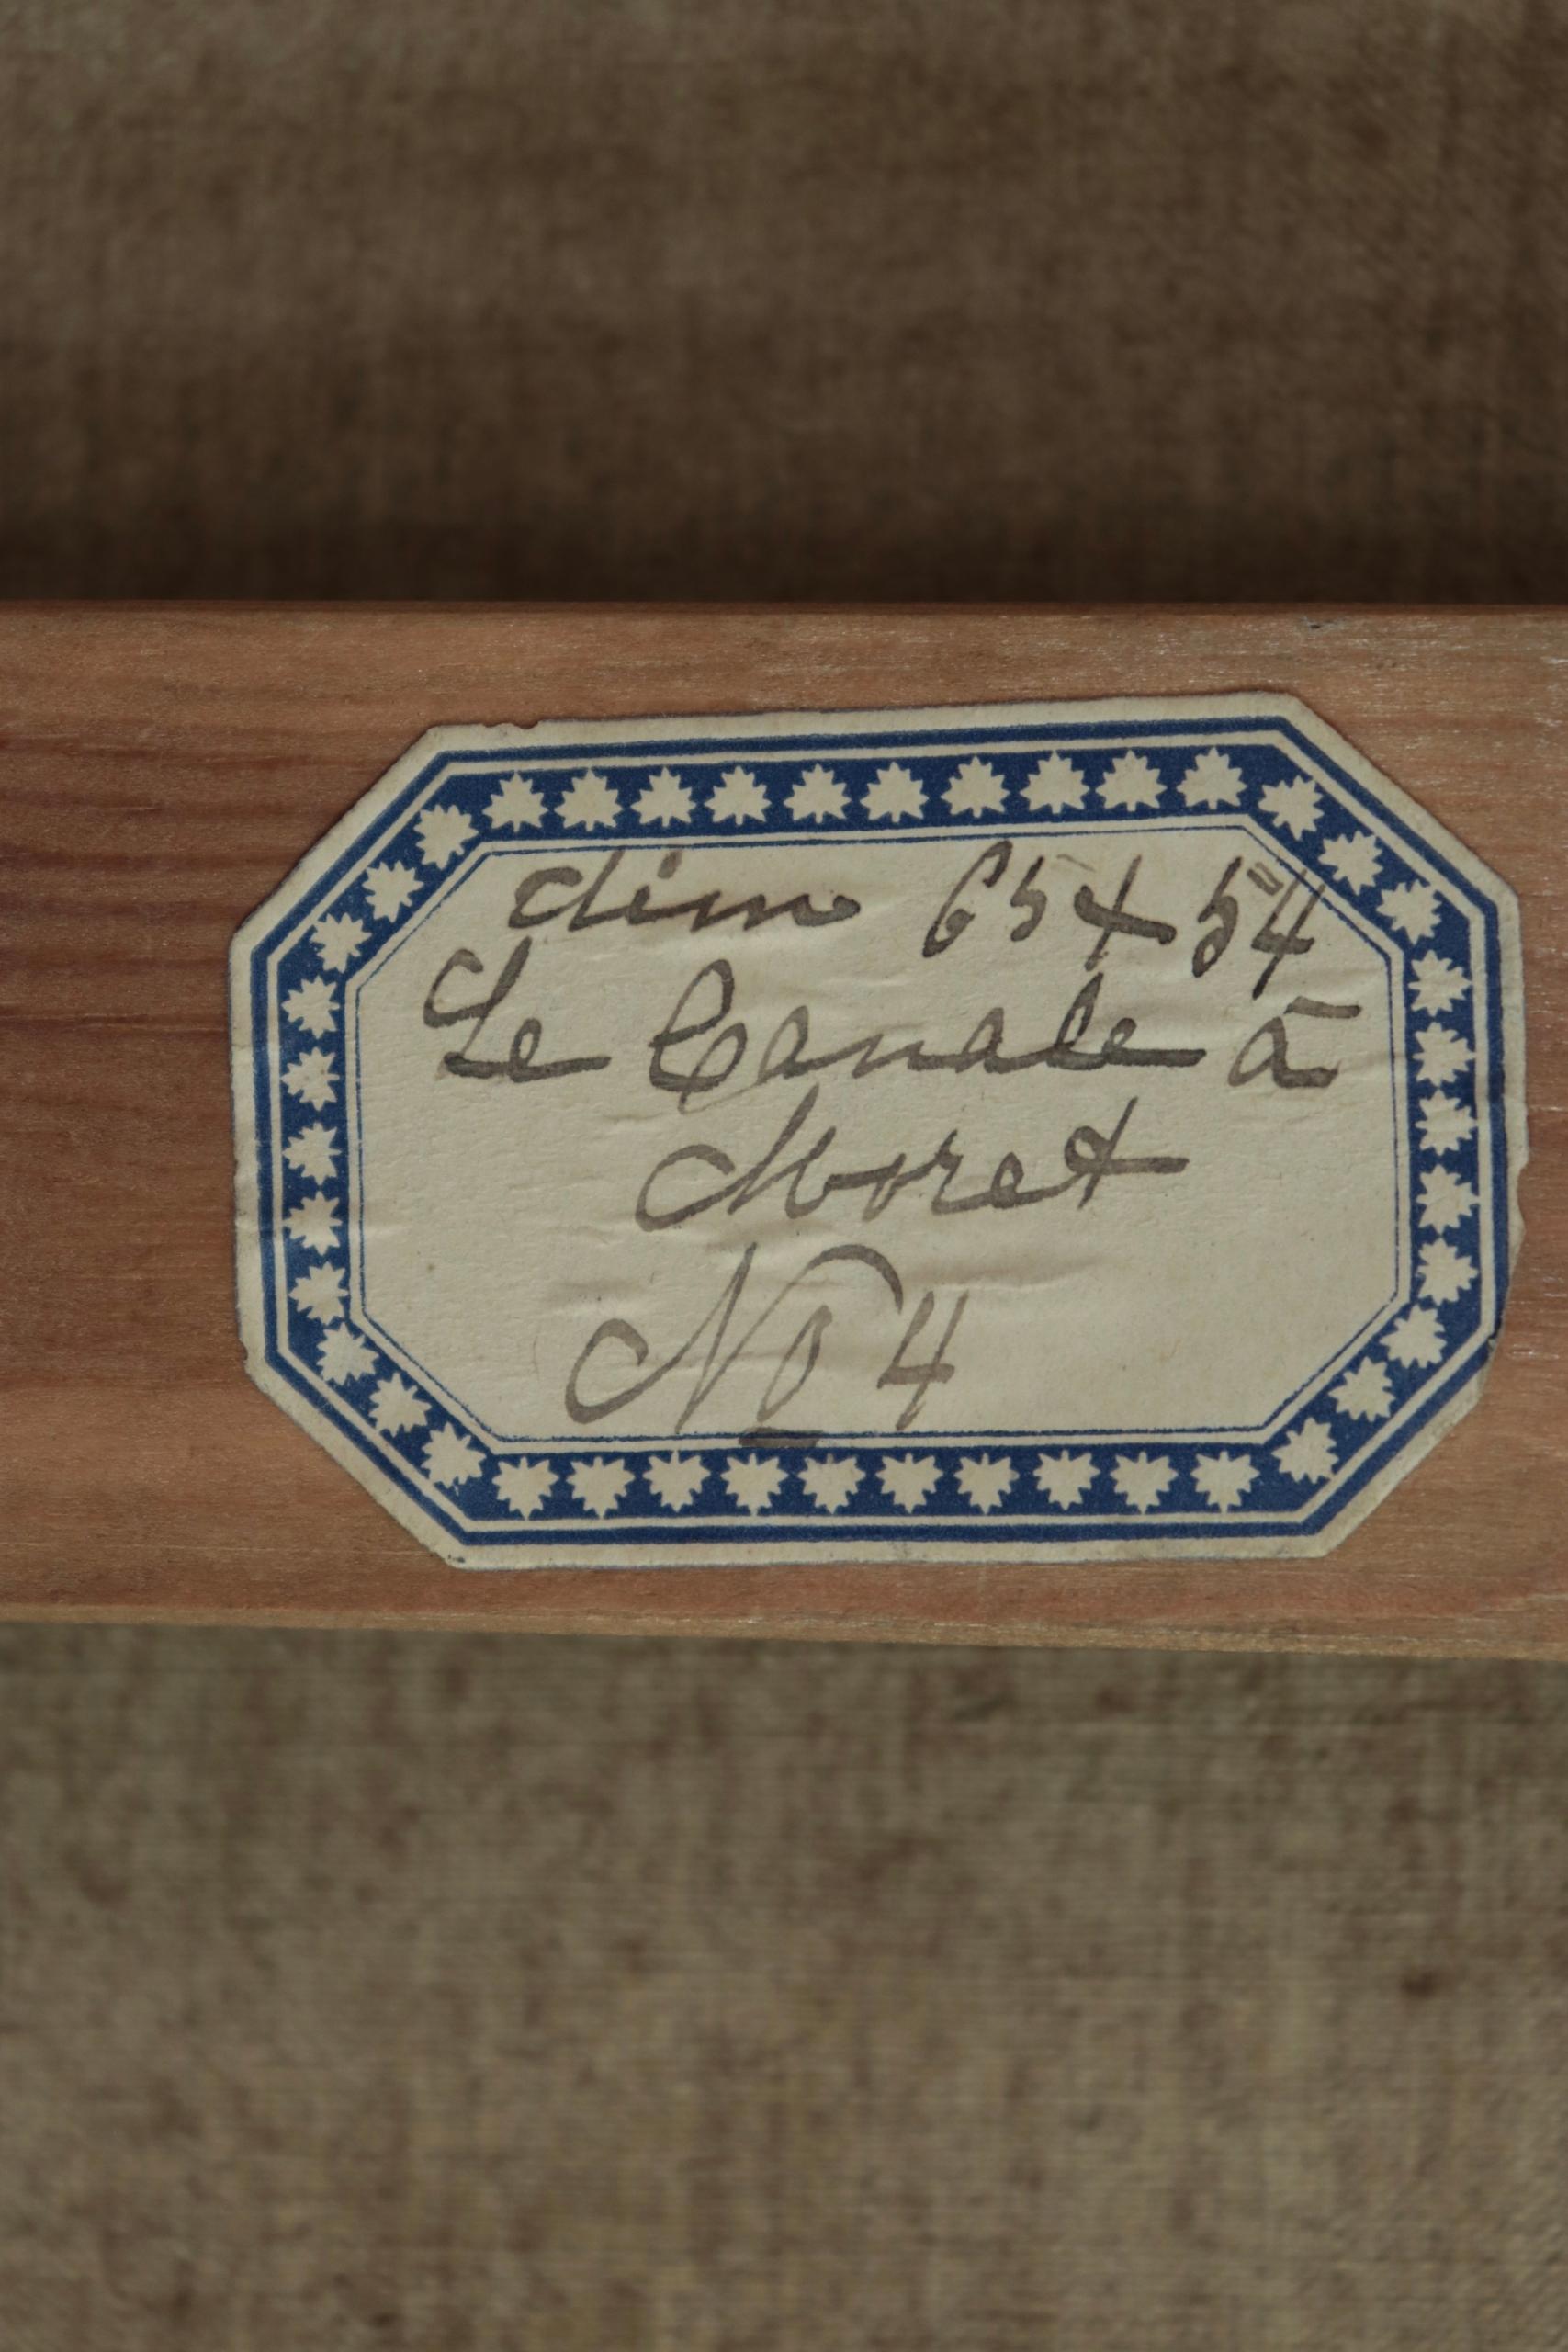 dim 65 x 54
Le Canale à
Moret
No 4